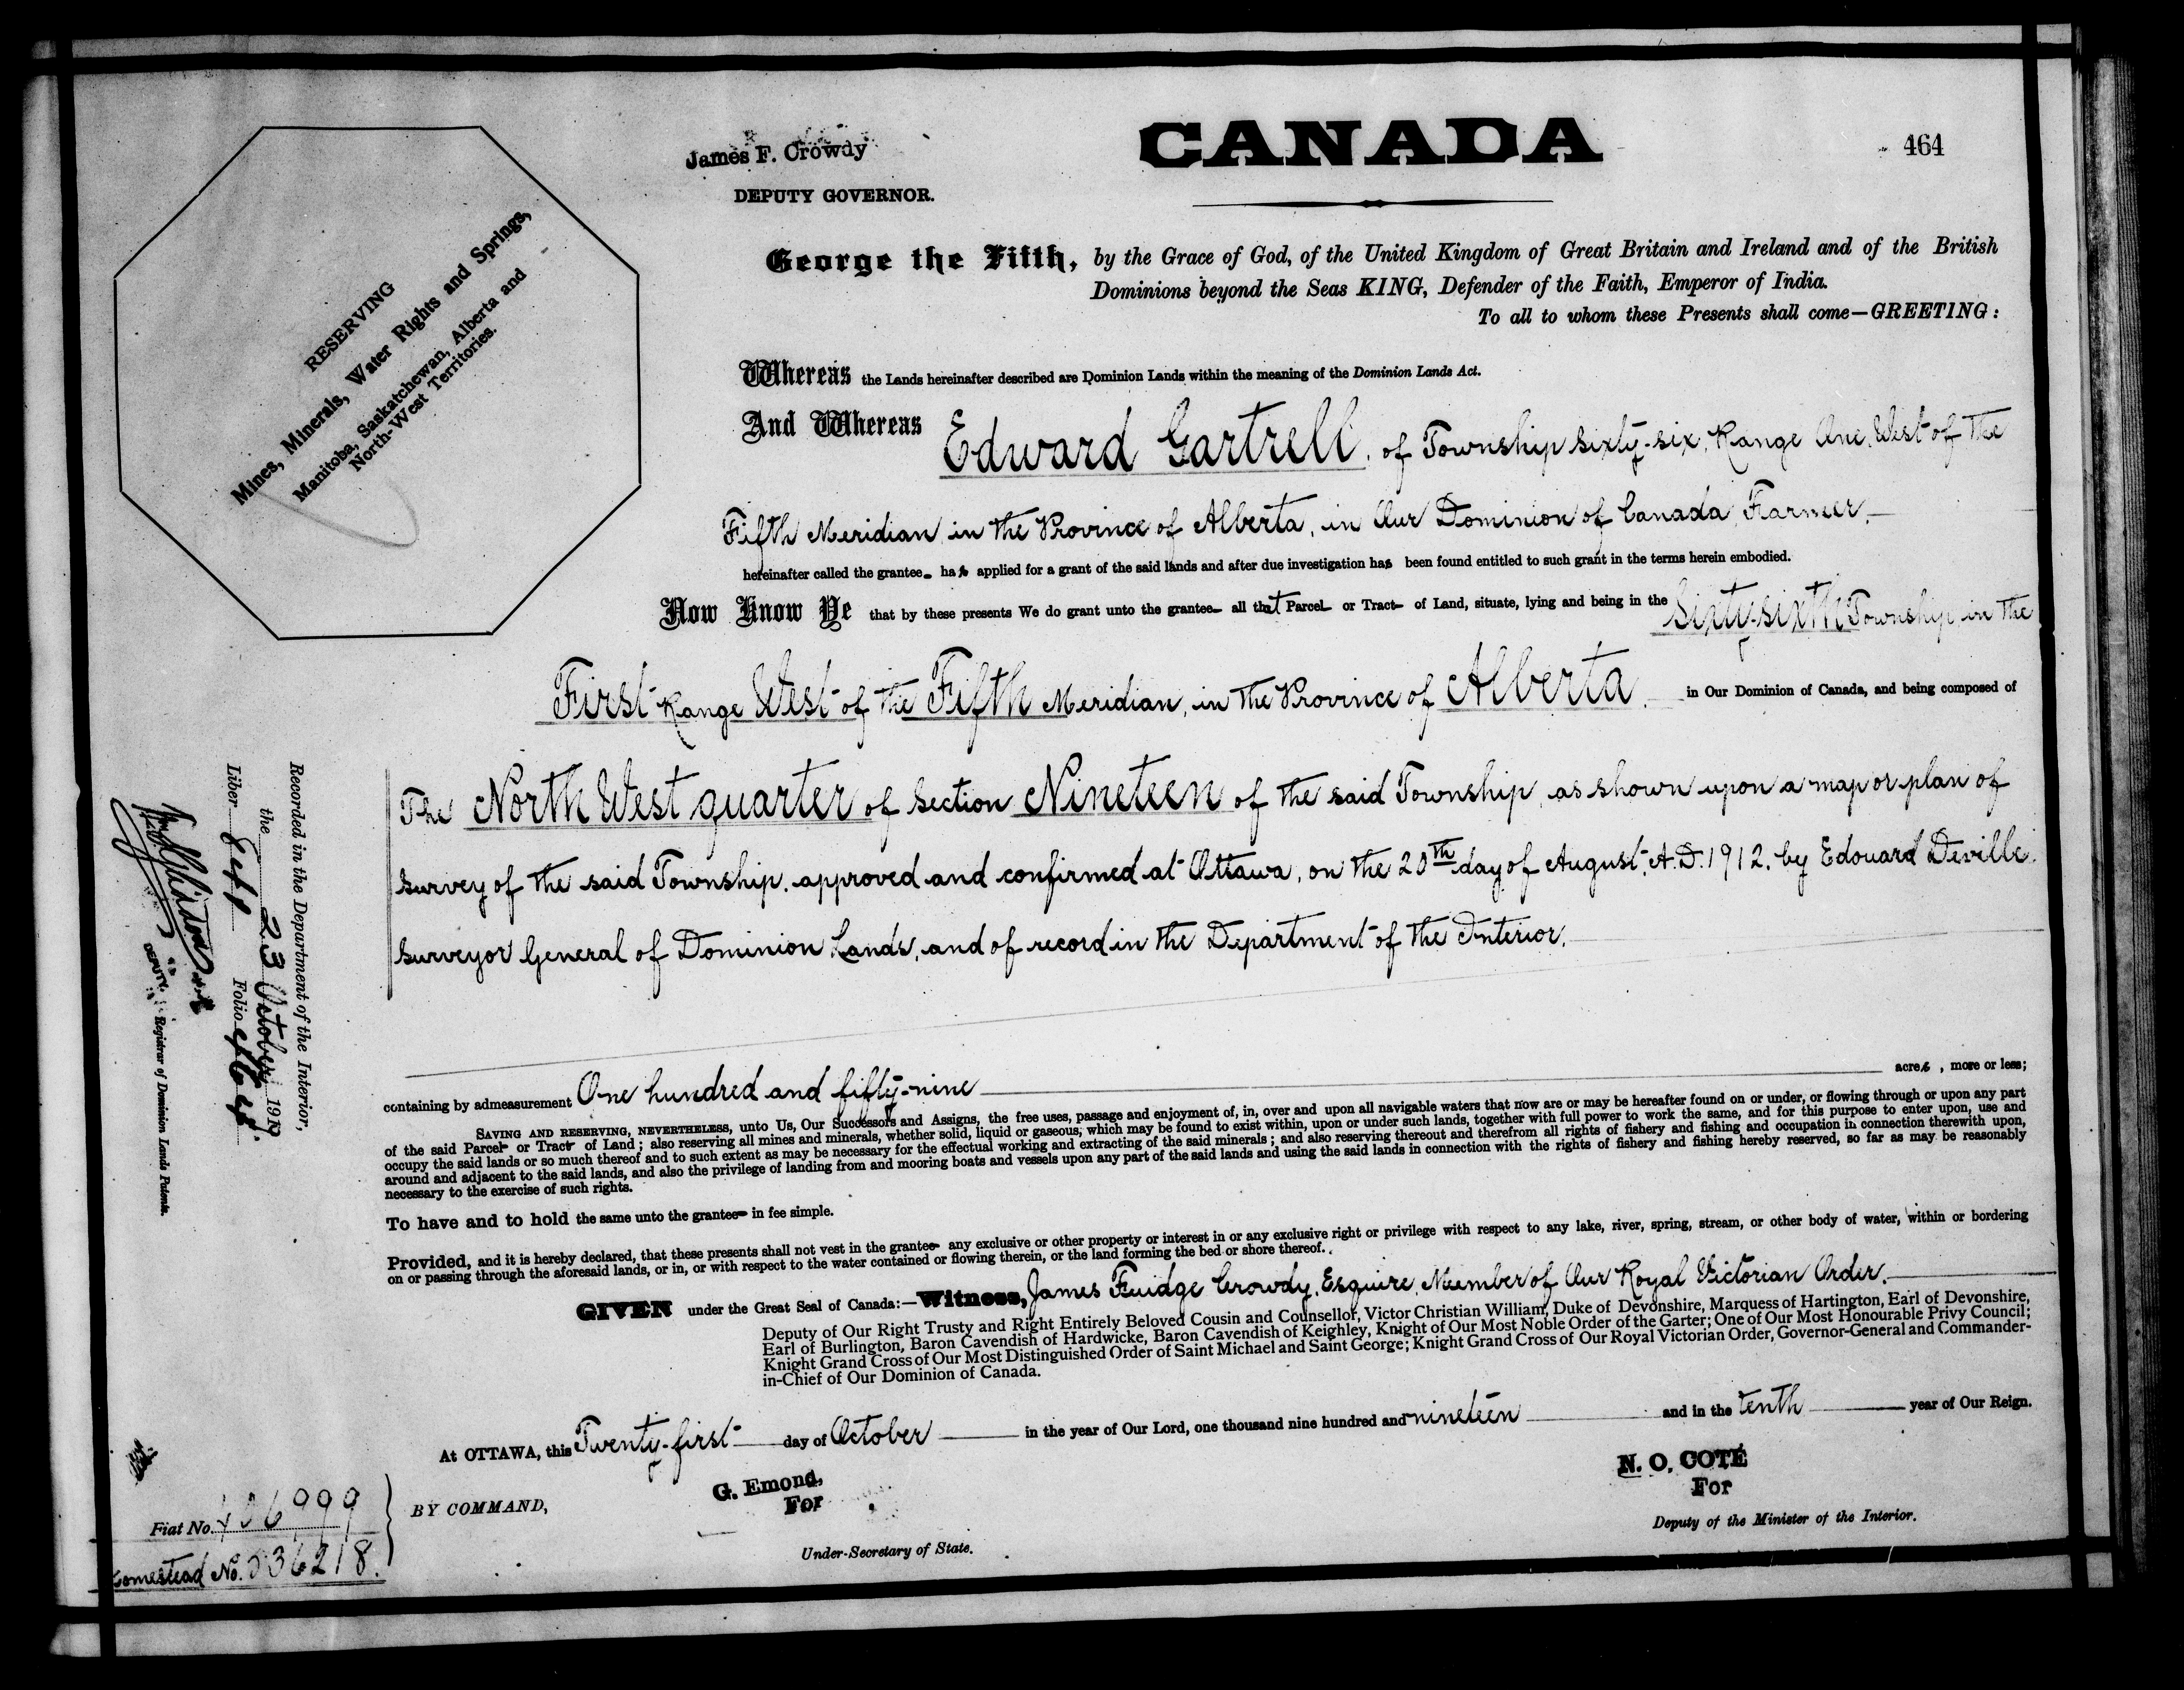 CANADA
464
James F. Crowdy
DEPUTY GOVERNOR.
RESERVING
Mines, Minerals, Water Rights and Springs,
Manitoba, Saskatchewan, Alberta and
North-West Territories.
George the Fifth, by the Grace of God, of the United Kingdom of Great Britain and Ireland and of the British
Dominions beyond the Seas KING, Defender of the Faith, Emperor of India.
To all to whom these Presents shall come—GREETING:
Whereas the Lands hereinafter described are Dominion Lands within the meaning of the Dominion Lands Act.
And Whereas Edward Gartrell, of Township sixty-six, Range One, West of the
Fifth Meridian, in the Province of Alberta, in Our Dominion of Canada, Farmer,
hereinafter called the grantee has applied for a grant of the said lands and after due investigation has been found entitled to such grant in the terms herein embodied.
Now Know Ye that by these presents We do grant unto the grantee all that Parcel or Tract of Land, situate, lying and being in the Sixty-sixth Township, in the
First Range West of the Fifth Meridian, in the Province of Alberta, in Our Dominion of Canada, and being composed of
The North West quarter of Section Nineteen of the said Township, as shown upon a map or plan of
survey of the said Township, approved and confirmed at Ottawa, on the 20th day of August, A.D. 1912, by Edouard Deville,
Surveyor General of Dominion Lands, and of record in the Department of the Interior.
containing by admeasurement One hundred and fifty-nine acres, more or less;
SAVING AND RESERVING, NEVERTHELESS, unto Us, Our Successors and Assigns, the free uses, passage and enjoyment of, in, over and upon all navigable waters that now are or may be hereafter found on or under, or flowing through or upon any part
of the said Parcel or Tract of Land; also reserving all mines and minerals, whether solid, liquid or gaseous, which may be found to exist within, upon or under such lands, together with full power to work the same, and for this purpose to enter upon, use and
occupy the said lands or so much thereof and to such extent as may be necessary for the effectual working and extracting of the said minerals; and also reserving thereout and therefrom all rights of fishery and fishing and occupation in connection therewith upon,
around and adjacent to the said lands, and also the privilege of landing from and mooring boats and vessels upon any part of the said lands and using the said lands in connection with the rights of fishery and fishing hereby reserved, so far as may be reasonably
necessary to the exercise of such rights.
To have and to hold the same unto the grantee in fee simple.
Provided, and it is hereby declared, that these presents shall not vest in the grantee any exclusive or other property or interest in or any exclusive right or privilege with respect to any lake, river, spring, stream, or other body of water, within or bordering
on or passing through the aforesaid lands, or in, or with respect to the water contained or flowing therein, or the land forming the bed or shore thereof.
GIVEN under the Great Seal of Canada:—Witness, James Fuidge Crowdy, Esquire, Member of Our Royal Victorian Order,
Deputy of Our Right Trusty and Right Entirely Beloved Cousin and Counsellor, Victor Christian William, Duke of Devonshire, Marquess of Hartington, Earl of Devonshire,
Earl of Burlington, Baron Cavendish of Hardwicke, Baron Cavendish of Keighley, Knight of Our Most Noble Order of the Garter; One of Our Most Honourable Privy Council;
Knight Grand Cross of Our Most Distinguished Order of Saint Michael and Saint George; Knight Grand Cross of Our Royal Victorian Order, Governor-General and Commander-
in-Chief of Our Dominion of Canada.
At OTTAWA, this Twenty-first day of October in the year of Our Lord, one thousand nine hundred and nineteen and in the tenth year of Our Reign.
BY COMMAND,
G. Emond,
For
Under-Secretary of State.
N. O. COTÉ
For
Deputy of the Minister of the Interior.
Recorded in the Department of the Interior,
the 23 October 191
Liber Folio
DEPUTY. Registrar of Dominion Lands Patents.
Fiat No.
Homestead No. 036218.